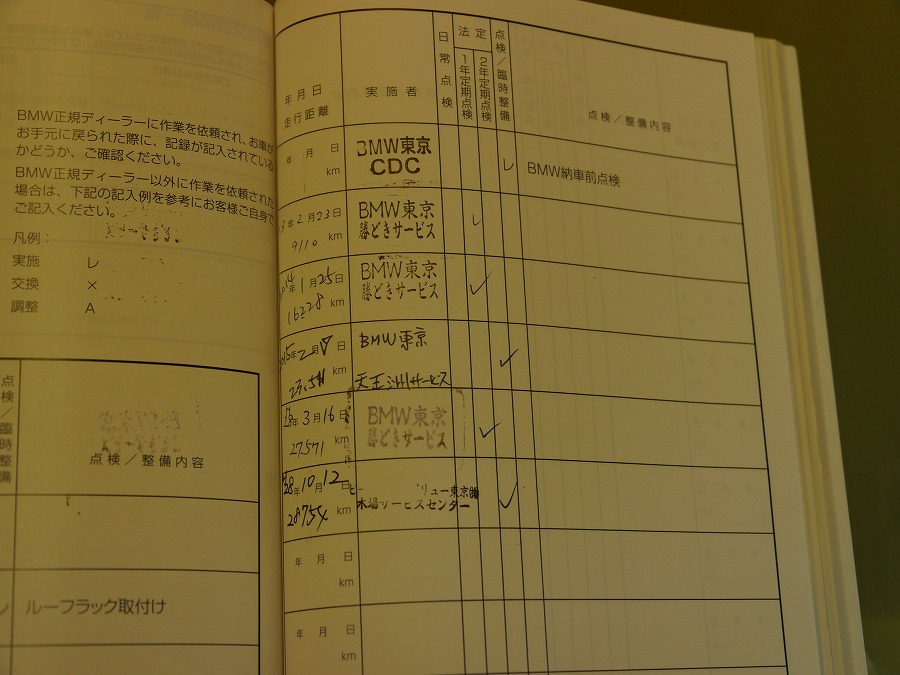 BMW正規ディーラーに作業を依頼され、お車が
お手元に戻られた際に、記録が記入されている
かどうか、ご確認ください。
BMW正規ディーラー以外に作業を依頼された
場合は、下記の記入例を参考にお客様ご自身で
ご記入ください。
凡例：
実施 レ
交換 ×
調整 A
点検／臨時整備
点検／整備内容
レ ルーフラック取付け
年月日
走行距離
実施者
日常点検
法定
1年定期点検
2年定期点検
点検／臨時整備
点検／整備内容
年 月 日
km
BMW東京
CDC
レ
BMW納車前点検
3年2月23日
9110 km
BMW東京
勝どきサービス
レ
2014年1月25日
16228 km
BMW東京
勝どきサービス
レ
2015年2月 日
km
BMW東京
天王洲サービス
レ
28年3月16日
27,571 km
BMW東京
勝どきサービス
レ
28年10月12日
28754 km
リュー東京㈱
木場サービスセンター
レ
年 月 日
km
年 月 日
km